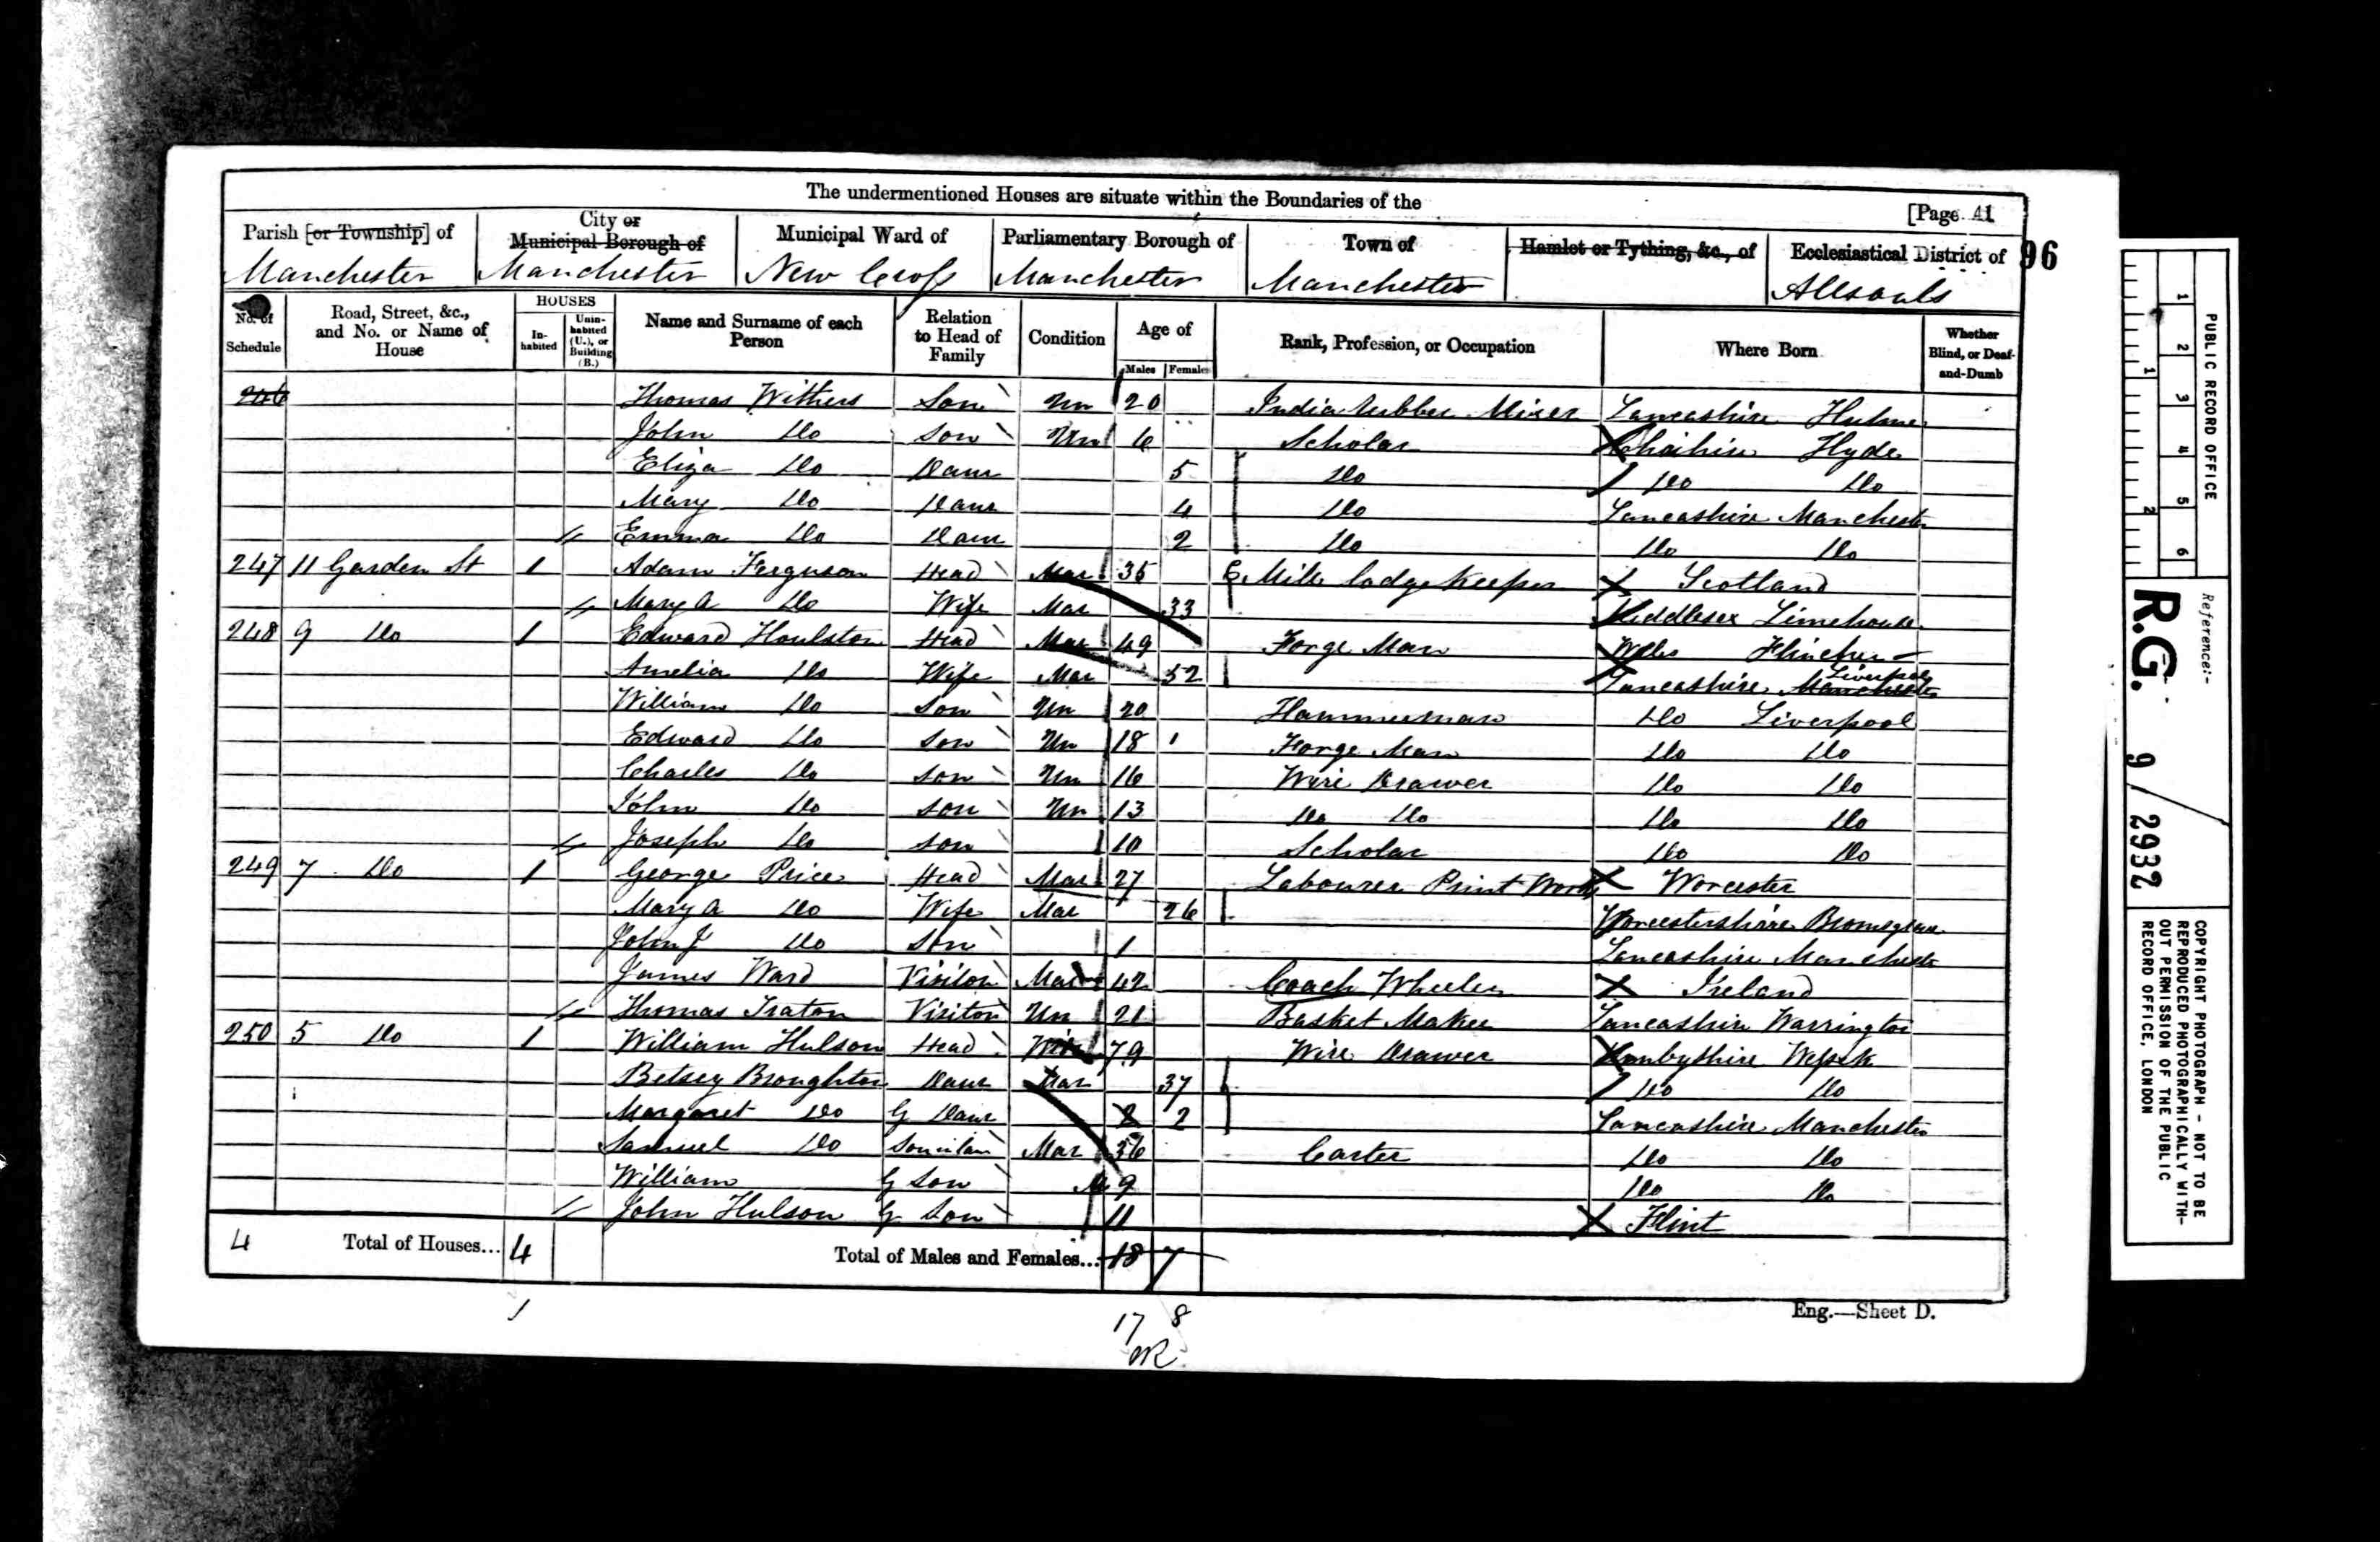 The undermentioned Houses are situate within the Boundaries of the
[Page 41
96
Parish [or Township] of Manchester
City or Municipal Borough of Manchester
Municipal Ward of New Cross
Parliamentary Borough of Manchester
Town of Manchester
Hamlet or Tything, &c., of
Ecclesiastical District of Allsouls
No. of Schedule
Road, Street, &c., and No. or Name of House
HOUSES
In-habited
Unin-habited (U.), or Building (B.)
Name and Surname of each Person
Relation to Head of Family
Condition
Age of
Males Females
Rank, Profession, or Occupation
Where Born
Whether Blind, or Deaf-and-Dumb
246 Thomas Withers Son Un 20 India rubber Mixer Lancashire Hulme
John Do Son Un 6 Scholar Cheshire Hyde
Eliza Do Daur 5 Do Do Do
Mary Do Daur 4 Do Lancashire Manchester
Emma Do Daur 2 Do Do Do
247 11 Garden St 1 Adam Ferguson Head Mar 35 Mill lodge Keeper Scotland
Mary A Do Wife Mar 33 Middlesex Limehouse
248 9 Do 1 Edward Houlston Head Mar 49 Forge Man Wales
Amelia Do Wife Mar 52 Lancashire Manchester Liverpool
William Do Son Un 20 Hammerman Do Liverpool
Edward Do Son Un 18 Forge Man Do Do
Charles Do Son Un 16 Wire Drawer Do Do
John Do Son Un 13 Do Do Do Do
Joseph Do Son 10 Scholar Do Do
249 7 Do 1 George Price Head Mar 27 Labourer Print Works Worcester
Mary A Do Wife Mar 26 Worcestershire Bromsgrove
John J Do Son 1 Lancashire Manchester
James Ward Visitor Mar 42 Coach Wheeler Ireland
Thomas Visitor Un 21 Basket Maker Lancashire Warrington
250 5 Do 1 William Hulson Head 79 Wire Drawer
Betsey Broughton Daur Mar 37 Do Do
Margaret Do G Daur 2 2 Lancashire Manchester
Samuel Do Son in law Mar 36 Carter Do Do
William G Son 9 Do Do
John Hulson G Son 11 Flint
4 Total of Houses... 4 Total of Males and Females... 18 7
Eng.—Sheet D.
17 8
PUBLIC RECORD OFFICE
1 2 3 4 5 6
1 2
Reference:-
R.G. 9/2932
COPYRIGHT PHOTOGRAPH - NOT TO BE
REPRODUCED PHOTOGRAPHICALLY WITH-
OUT PERMISSION OF THE PUBLIC
RECORD OFFICE, LONDON